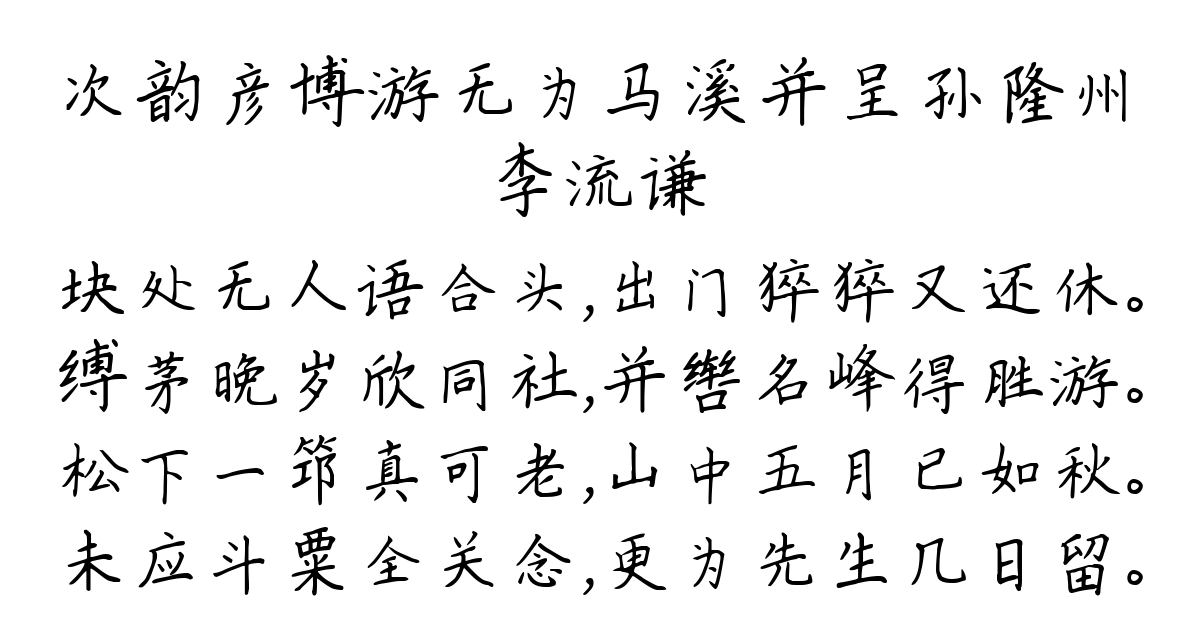 次韵彦博游无为马溪并呈孙隆州
李流谦
块处无人语合头,出门猝猝又还休。
缚茅晚岁欣同社,并辔名峰得胜游。
松下一筇真可老,山中五月已如秋。
未应斗粟全关念,更为先生几日留。